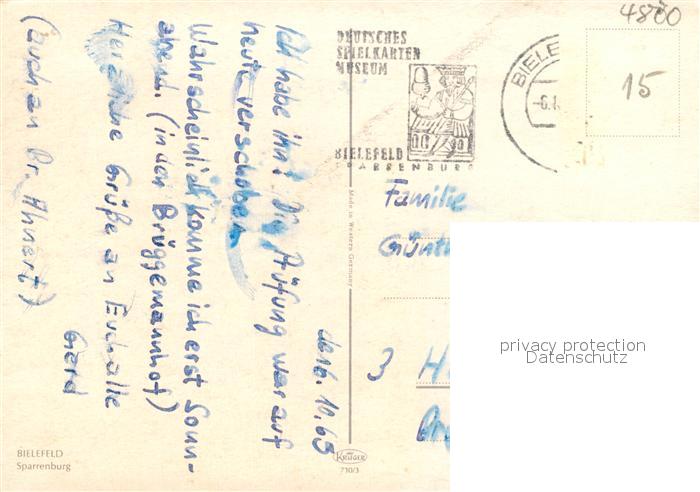 4800
15
DEUTSCHES
SPIELKARTEN
MUSEUM
BIELEFELD
SPARRENBURG
BIELE
-6.1
den 6.10.65
Ich habe ihn! Die Prüfung war auf
heute verschoben.
Wahrscheinlich komme ich erst Sonn-
abend. (in den Brüggemannhof)
Herzliche Grüße an Euch alle
Gerd
(auch an Br. Ahnert)
Familie
Günt
3 H
Made in Western Germany
privacy protection
Datenschutz
BIELEFELD
Sparrenburg
KRÜGER
730/3